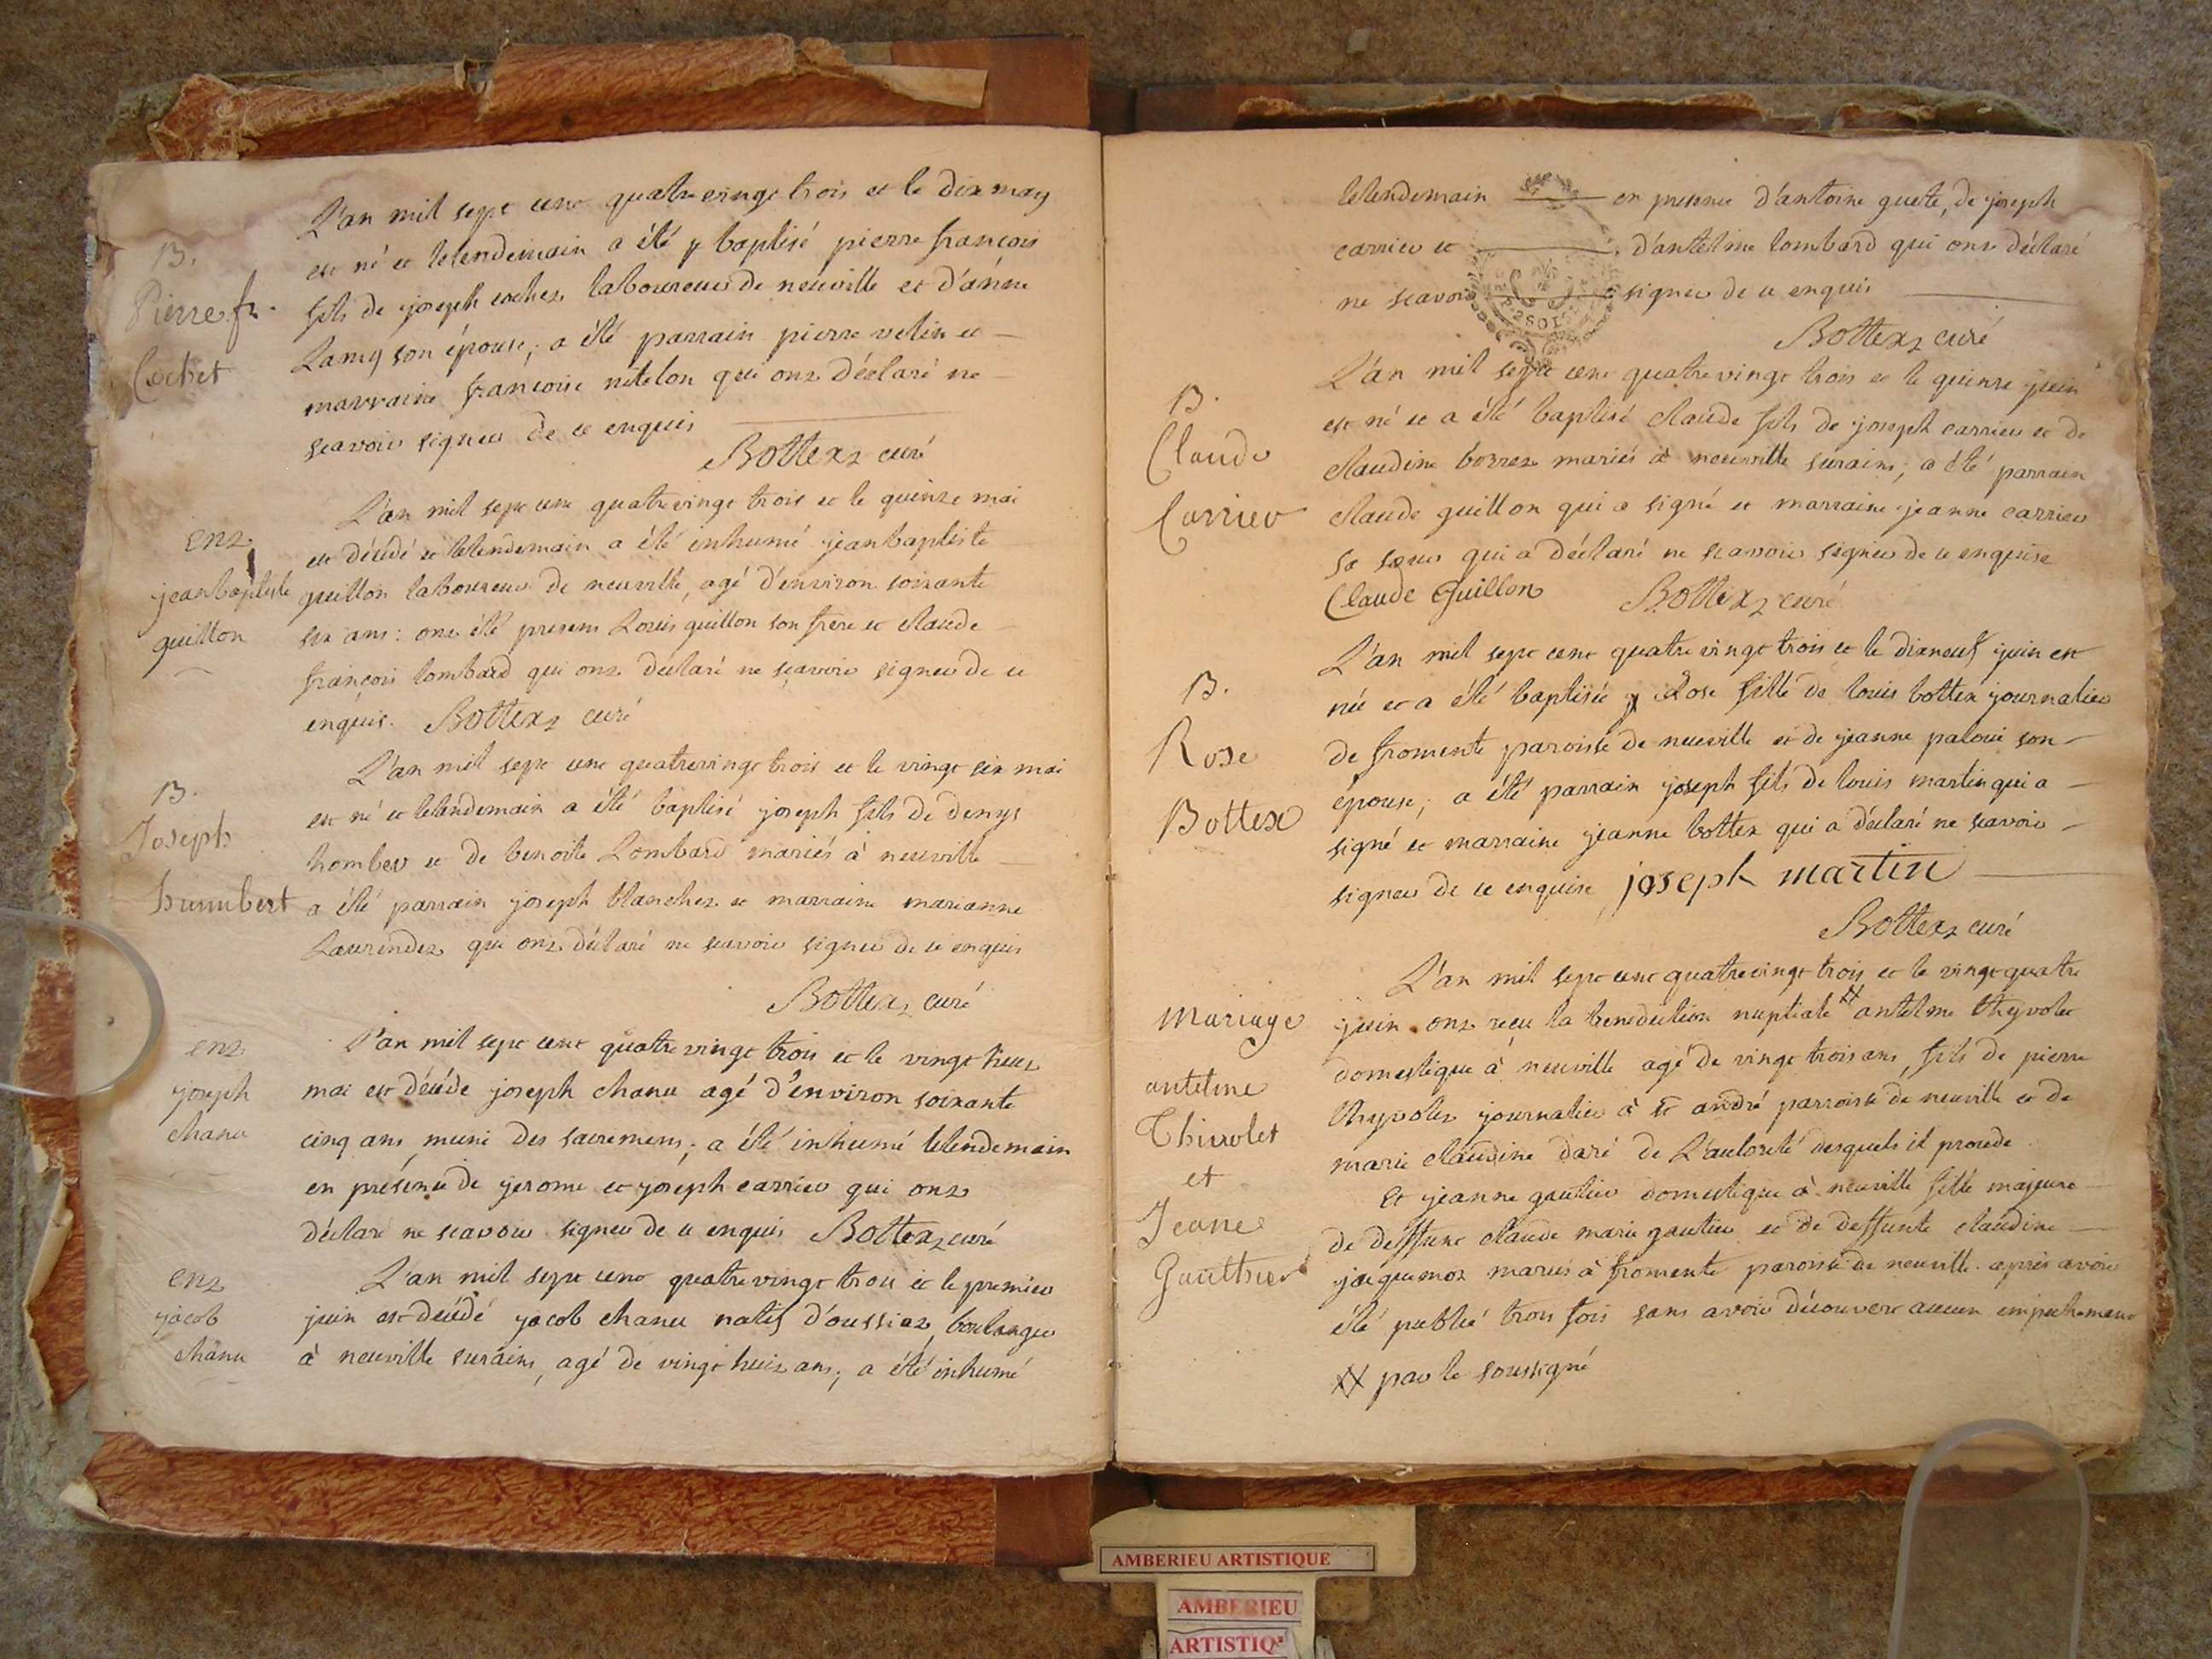 B.
Pierre fr.
Cochet
L'an mil sept cent quatre vingt trois et le dix may
est né et le lendemain a été baptisé pierre françois
fils de joseph cochet laboureur de neuville et d'anne
Lamy son épouse; a été parrain pierre velin et
marraine françoise nételon qui ont déclaré ne
scavoir signer de ce enquis
Bottex curé
ent
jean baptiste
guillon
L'an mil sept cent quatrevingt trois et le quinze mai
est décédé et lelendemain a été inhumé jean baptiste
guillon laboureur de neuville, agé d'environ soixante
six ans: ont été presens Louis guillon son frere et claude
françois lombard qui ont declaré ne scavoir signer de ce
enquis. Bottex curé
B.
Joseph
humbert
L'an mil sept cent quatrevingt trois et le vingt six mai
est né et lelendemain a été baptisé joseph fils de denys
et de benoite Lombard mariés à neuville
a été parrain joseph blanchet et marraine marianne
Laurendet qui ont déclaré ne scavoir signer de ce enquis
Bottex curé
ent
joseph
chanu
L'an mil sept cent quatre vingt trois et le vingt huit
mai est décédé joseph chanu agé d'environ soixante
cinq ans muni des sacremens; a été inhumé lelendemain
en présence de jerome et joseph carrier qui ont
déclaré ne scavoir signer de ce enquis Bottex curé
ent
jacob
chanu
L'an mil sept cent quatre vingt trois et le premier
juin est décédé jacob chanu natif d'oussiat, boulanger
à neuville surains, agé de vingt huit ans; a été inhumé
lelendemain en presence d'antoine guete, de joseph
carrier et d'antelme lombard qui ont déclaré
ne scavoir signer de ce enquis
2 SOLS
Bottex curé
B.
Claude
Carrier
L'an mil sept cent quatrevingt trois et le quinze juin
est né et a été baptisé claude fils de joseph carrier et de
claudine borret mariés à neuville surains; a été parrain
claude guillon qui a signé et marraine jeanne carrier
sa soeur qui a déclaré ne scavoir signer de ce enquise
Claude Guillon Bottex curé
B.
Rose
Bottex
L'an mil sept cent quatre vingt trois et le dixneuf juin est
née et a été baptisée Rose fille de louis bottex journalier
de fromente paroisse de neuville et de jeanne paloui son
épouse; a été parrain joseph fils de louis martin qui a
signé et marraine jeanne bottex qui a déclaré ne scavoir
signer de ce enquise joseph martin
Bottex curé
Mariage
antelme
Thivolet
et
Jeane
Gauthier
L'an mil sept cent quatrevingt trois et le vingt quatre
juin ont reçu la benediction nuptiale XX antelme thyvolet
domestique à neuville agé de vingt trois ans, fils de pierre
thyvolet journalier à st andré parroisse de neuville et de
marie claudine daré de L'autorité desquels il procede
Et jeanne gautier domestique à neuville fille majeure
de deffunt claude marie gautier et de deffunte claudine
jacquemot mariés à fromente paroisse de neuville. après avoir
été publié trois fois sans avoir découvert aucun empechement
XX par le soussigné
AMBERIEU ARTISTIQUE
AMBERIEU
ARTISTIQ